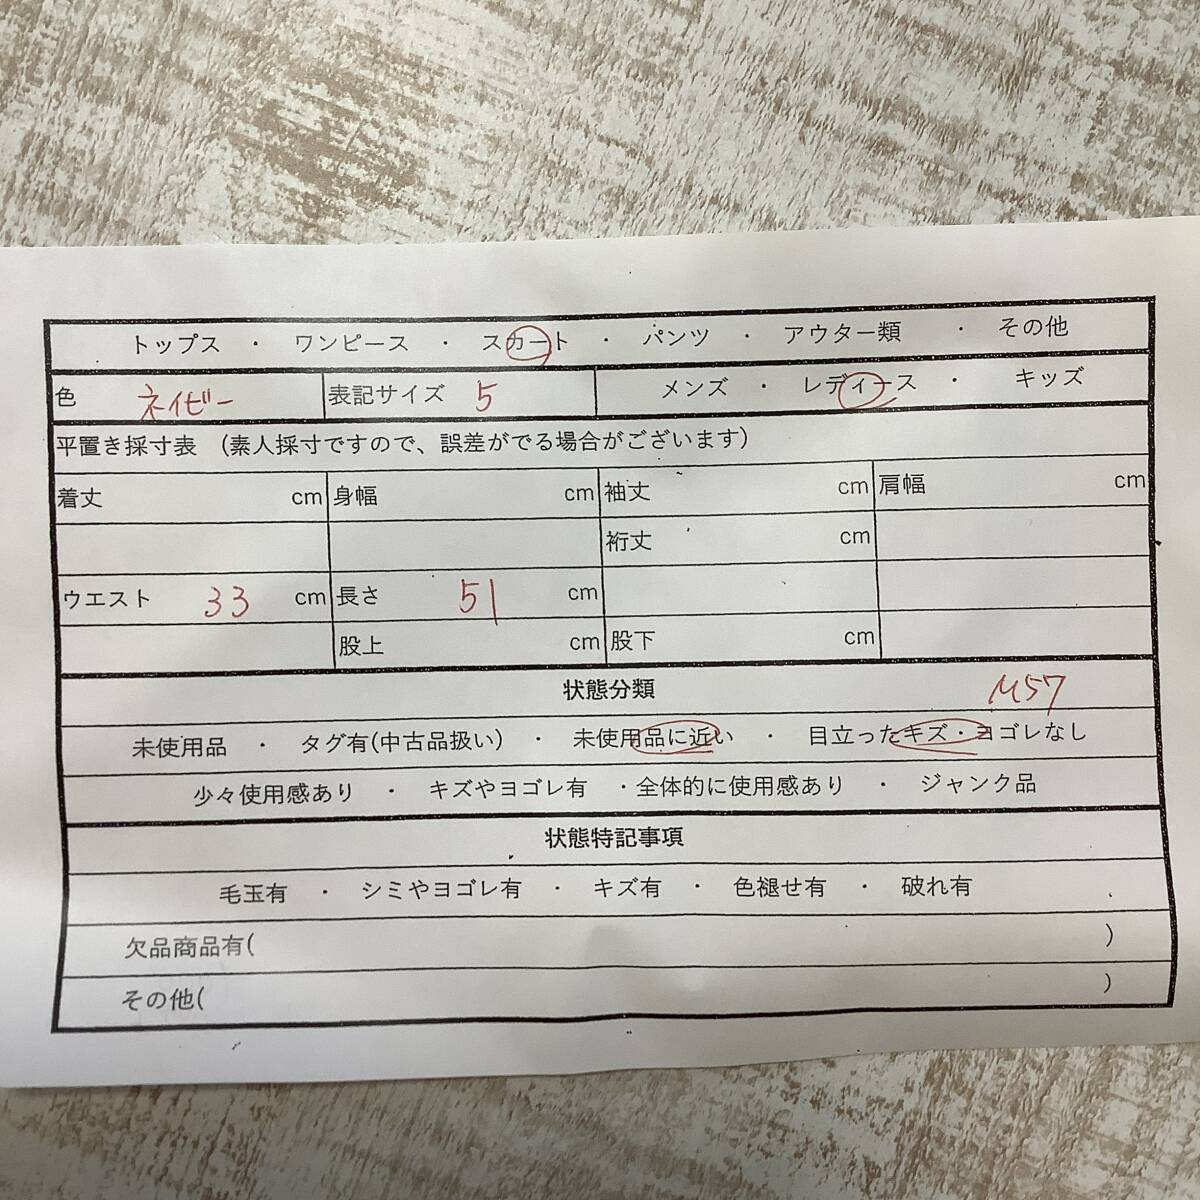 トップス ・ ワンピース ・ スカート ・ パンツ ・ アウター類 ・ その他
色 ネイビー 表記サイズ 5 メンズ ・ レディース ・ キッズ
平置き採寸表 (素人採寸ですので、誤差がでる場合がございます)
着丈 cm 身幅 cm 袖丈 cm 肩幅 cm
裄丈 cm
ウエスト 33 cm 長さ 51 cm
股上 cm 股下 cm
状態分類 M57
未使用品 ・ タグ有(中古品扱い) ・ 未使用品に近い ・ 目立ったキズ・ヨゴレなし
少々使用感あり ・ キズやヨゴレ有 ・全体的に使用感あり ・ ジャンク品
状態特記事項
毛玉有 ・ シミやヨゴレ有 ・ キズ有 ・ 色褪せ有 ・ 破れ有
欠品商品有( )
その他( )